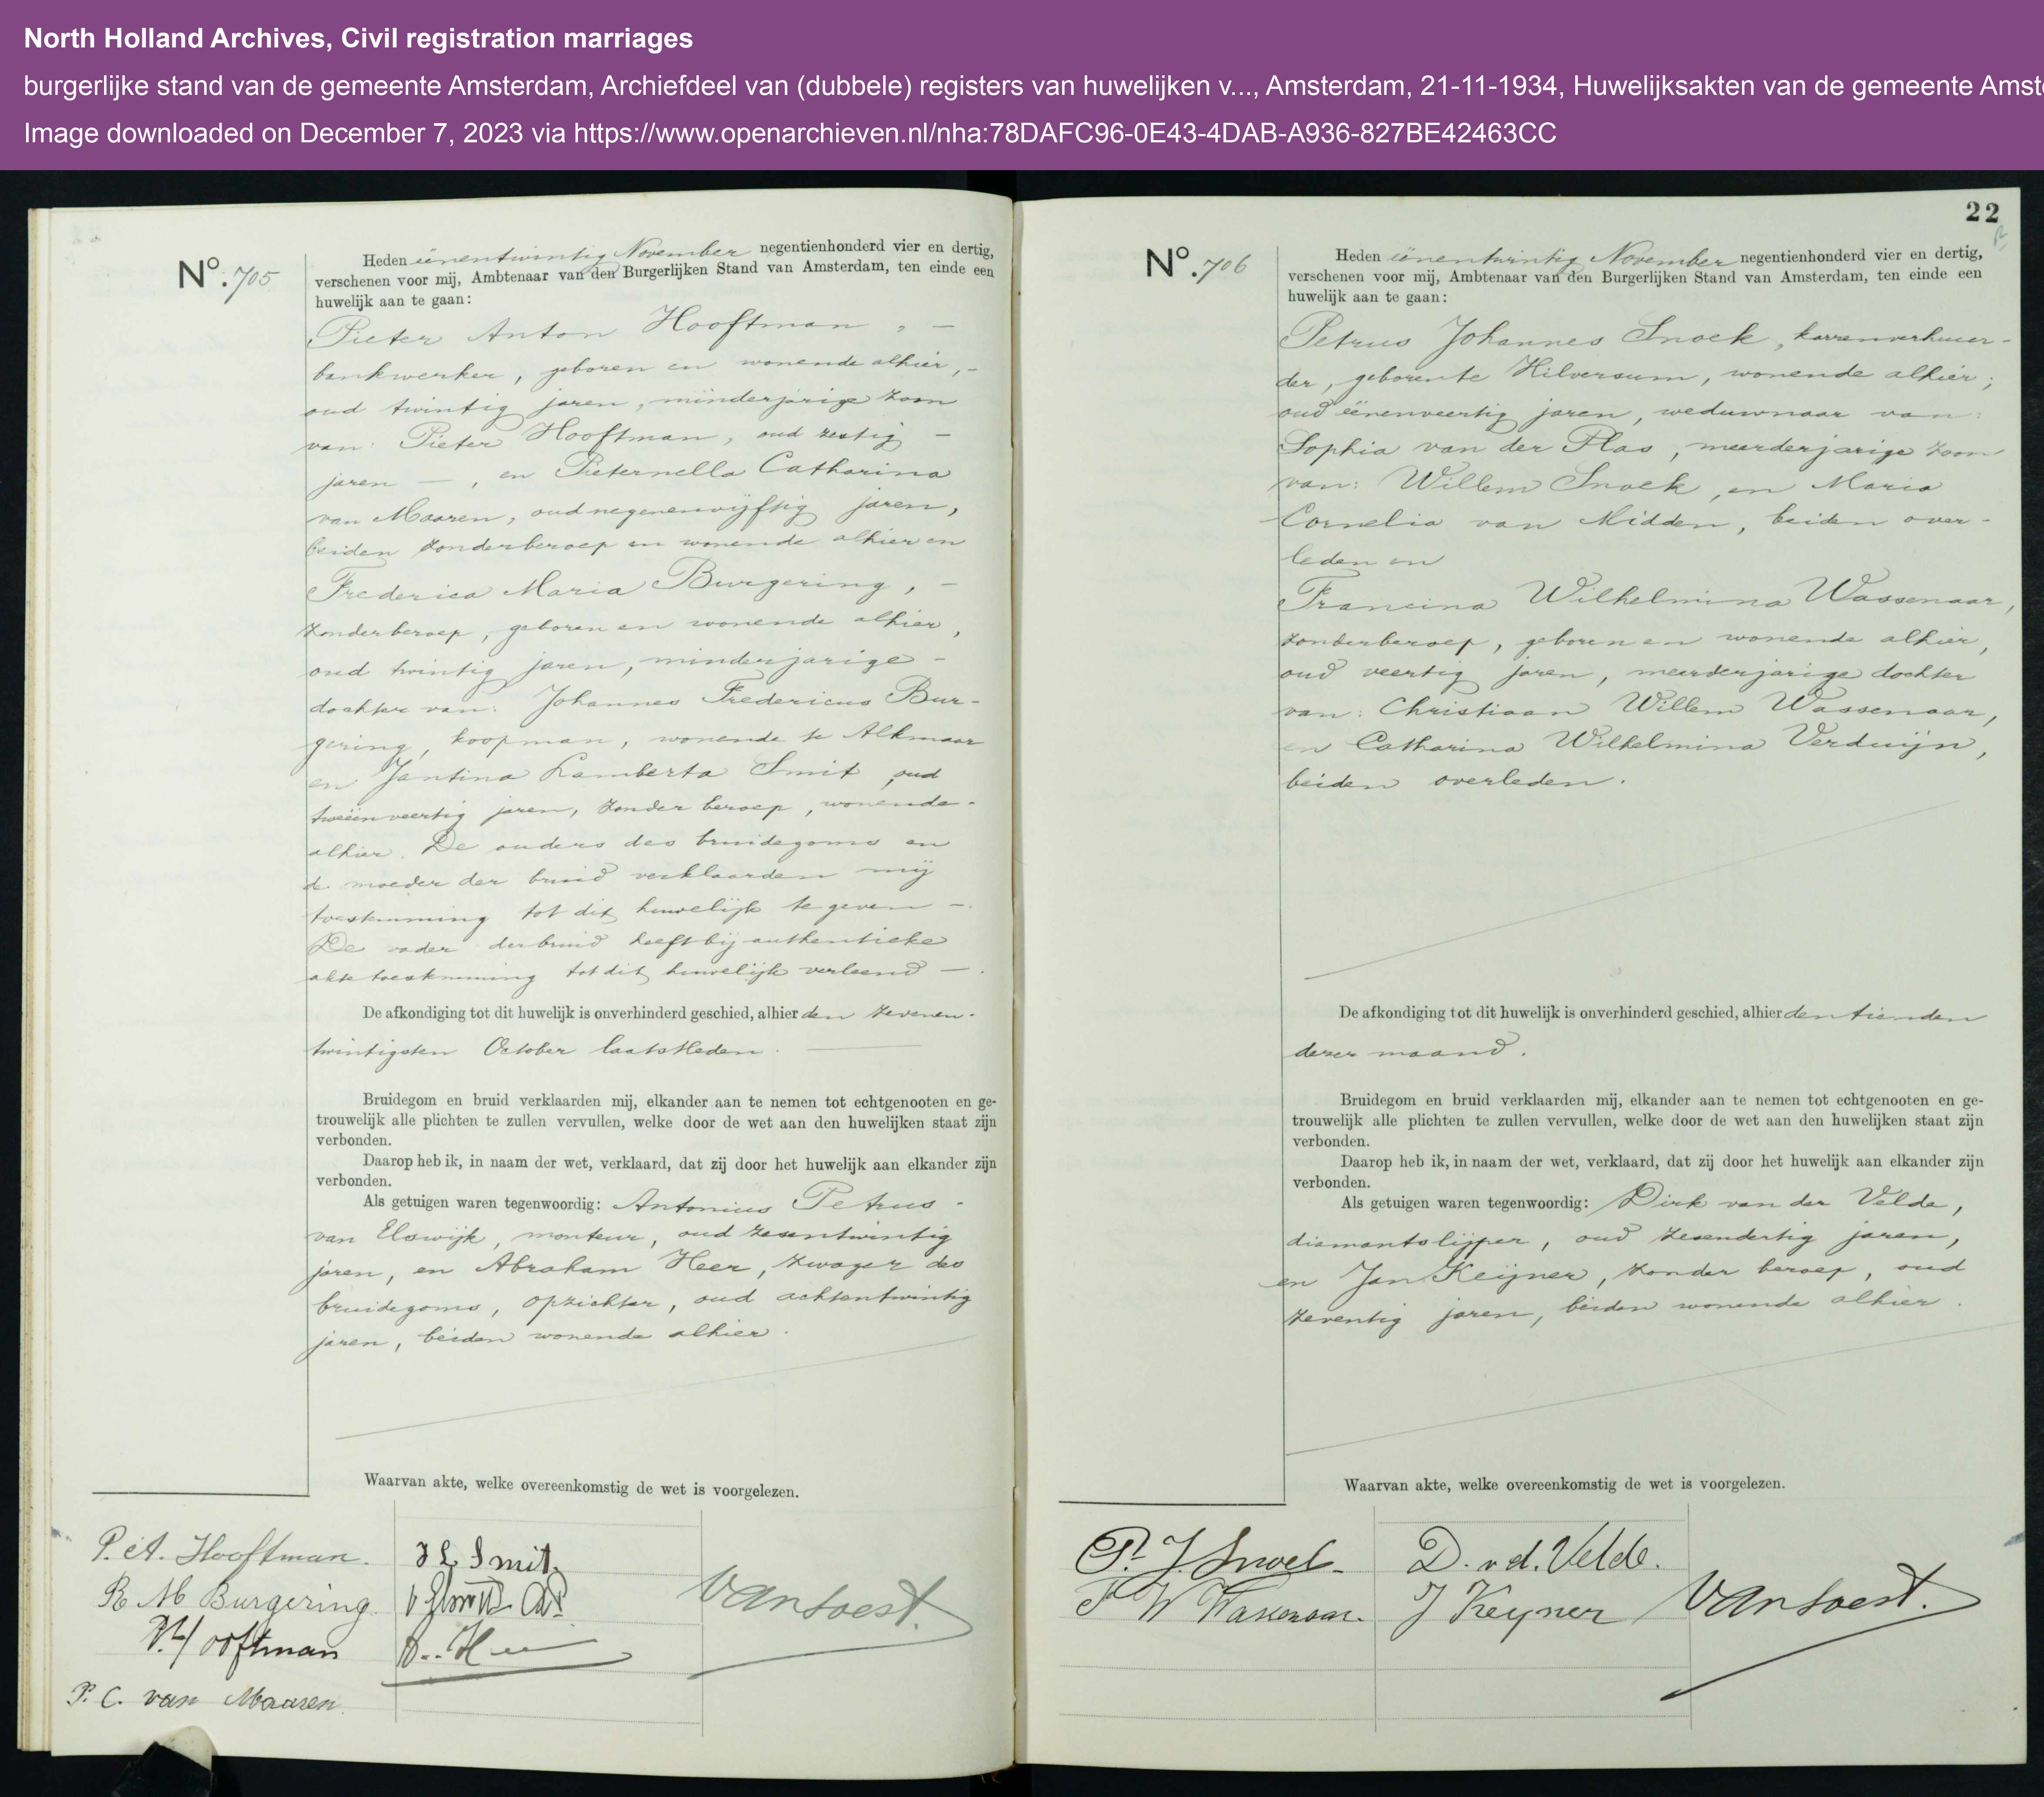 North Holland Archives, Civil registration marriages
burgerlijke stand van de gemeente Amsterdam, Archiefdeel van (dubbele) registers van huwelijken v..., Amsterdam, 21-11-1934, Huwelijksakten van de gemeente Amst
Image downloaded on December 7, 2023 via https://www.openarchieven.nl/nha:78DAFC96-0E43-4DAB-A936-827BE42463CC
No. 705
Heden éénentwintig November negentienhonderd vier en dertig,
verschenen voor mij, Ambtenaar van den Burgerlijken Stand van Amsterdam, ten einde een
huwelijk aan te gaan:
Pieter Anton Hooftman, —
bankwerker, geboren en wonende alhier, -
oud twintig jaren, minderjarige zoon
van: Pieter Hooftman, oud zestig —
jaren —, en Pieternella Catharina
van Maaren, oud negenenvijftig jaren,
beiden zonder beroep en wonende alhier en
Frederica Maria Burgering, —
zonder beroep, geboren en wonende alhier,
oud twintig jaren, minderjarige -
dochter van: Johannes Fredericus Bur-
gering, koopman, wonende te Alkmaar
en Jantina Lamberta Smit, oud
tweeënveertig jaren, zonder beroep, wonende -
alhier. De ouders des bruidegoms en
de moeder der bruid verklaarden mij
toestemming tot dit huwelijk te geven —.
De vader der bruid heeft bij authentieke
akte toestemming tot dit huwelijk verleend —.
De afkondiging tot dit huwelijk is onverhinderd geschied, alhier den zevenen-
twintigsten October laatstleden. —
Bruidegom en bruid verklaarden mij, elkander aan te nemen tot echtgenooten en ge-
trouwelijk alle plichten te zullen vervullen, welke door de wet aan den huwelijken staat zijn
verbonden.
Daarop heb ik, in naam der wet, verklaard, dat zij door het huwelijk aan elkander zijn
verbonden.
Als getuigen waren tegenwoordig: Antonius Petrus -
van Elswijk, monteur, oud zesentwintig
jaren, en Abraham Heer, zwager des
bruidegoms, opzichter, oud achtentwintig
jaren, beiden wonende alhier.
Waarvan akte, welke overeenkomstig de wet is voorgelezen.
P. A. Hooftman.
J L Smit.
M Burgering.
P. Hooftman
van Soest.
P. C. van Maaren.
22
No. 706
Heden éénentwintig November negentienhonderd vier en dertig,
verschenen voor mij, Ambtenaar van den Burgerlijken Stand van Amsterdam, ten einde een
huwelijk aan te gaan:
Petrus Johannes Snoek, karrenverhuur-
der, geboren te Hilversum, wonende alhier;
oud éénenveertig jaren, weduwnaar van:
Sophia van der Plas, meerderjarige zoon
van: Willem Snoek, en Maria
Cornelia van Midden, beiden over-
leden en
Francina Wilhelmina Wassenaar,
zonder beroep, geboren en wonende alhier,
oud veertig jaren, meerderjarige dochter
van: Christiaan Willem Wassenaar,
en Catharina Wilhelmina Verduijn,
beiden overleden.
De afkondiging tot dit huwelijk is onverhinderd geschied, alhier den tienden
dezer maand.
Bruidegom en bruid verklaarden mij, elkander aan te nemen tot echtgenooten en ge-
trouwelijk alle plichten te zullen vervullen, welke door de wet aan den huwelijken staat zijn
verbonden.
Daarop heb ik, in naam der wet, verklaard, dat zij door het huwelijk aan elkander zijn
verbonden.
Als getuigen waren tegenwoordig: Dirk van der Velde,
diamantslijper, oud zesendertig jaren,
en Jan Keijner, zonder beroep, oud
zeventig jaren, beiden wonende alhier.
Waarvan akte, welke overeenkomstig de wet is voorgelezen.
P. J. Snoek
D. v d. Velde.
W Wassenaar.
J Keyner
van Soest.